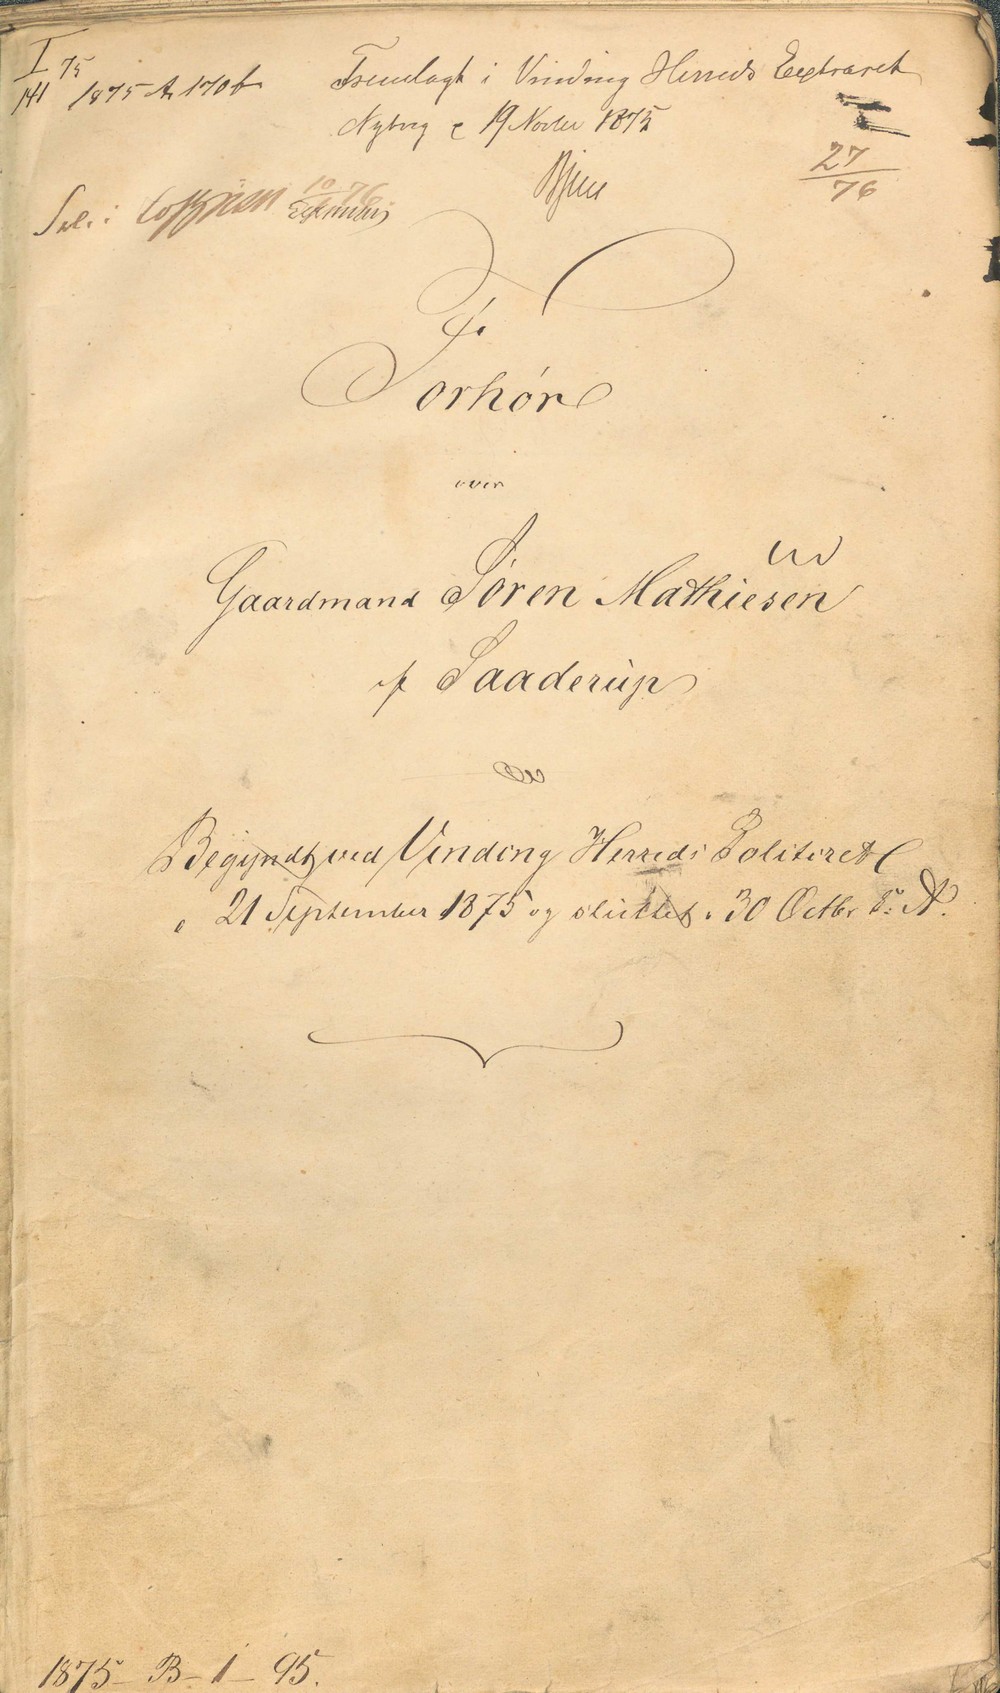 I 75
141 1875 A 170b
Fremlagt i Vinding Herreds Extraret
Nyborg 19 Novbr 1875
27
76
10 76
Forhør
over
Gaardmand Søren Mathiesen
af Saaderup
Begyndt ved Vinding Herreds Politiret
21 September 1875 og sluttet 30 Octbr s. A.
1875 - B - 1 - 95.